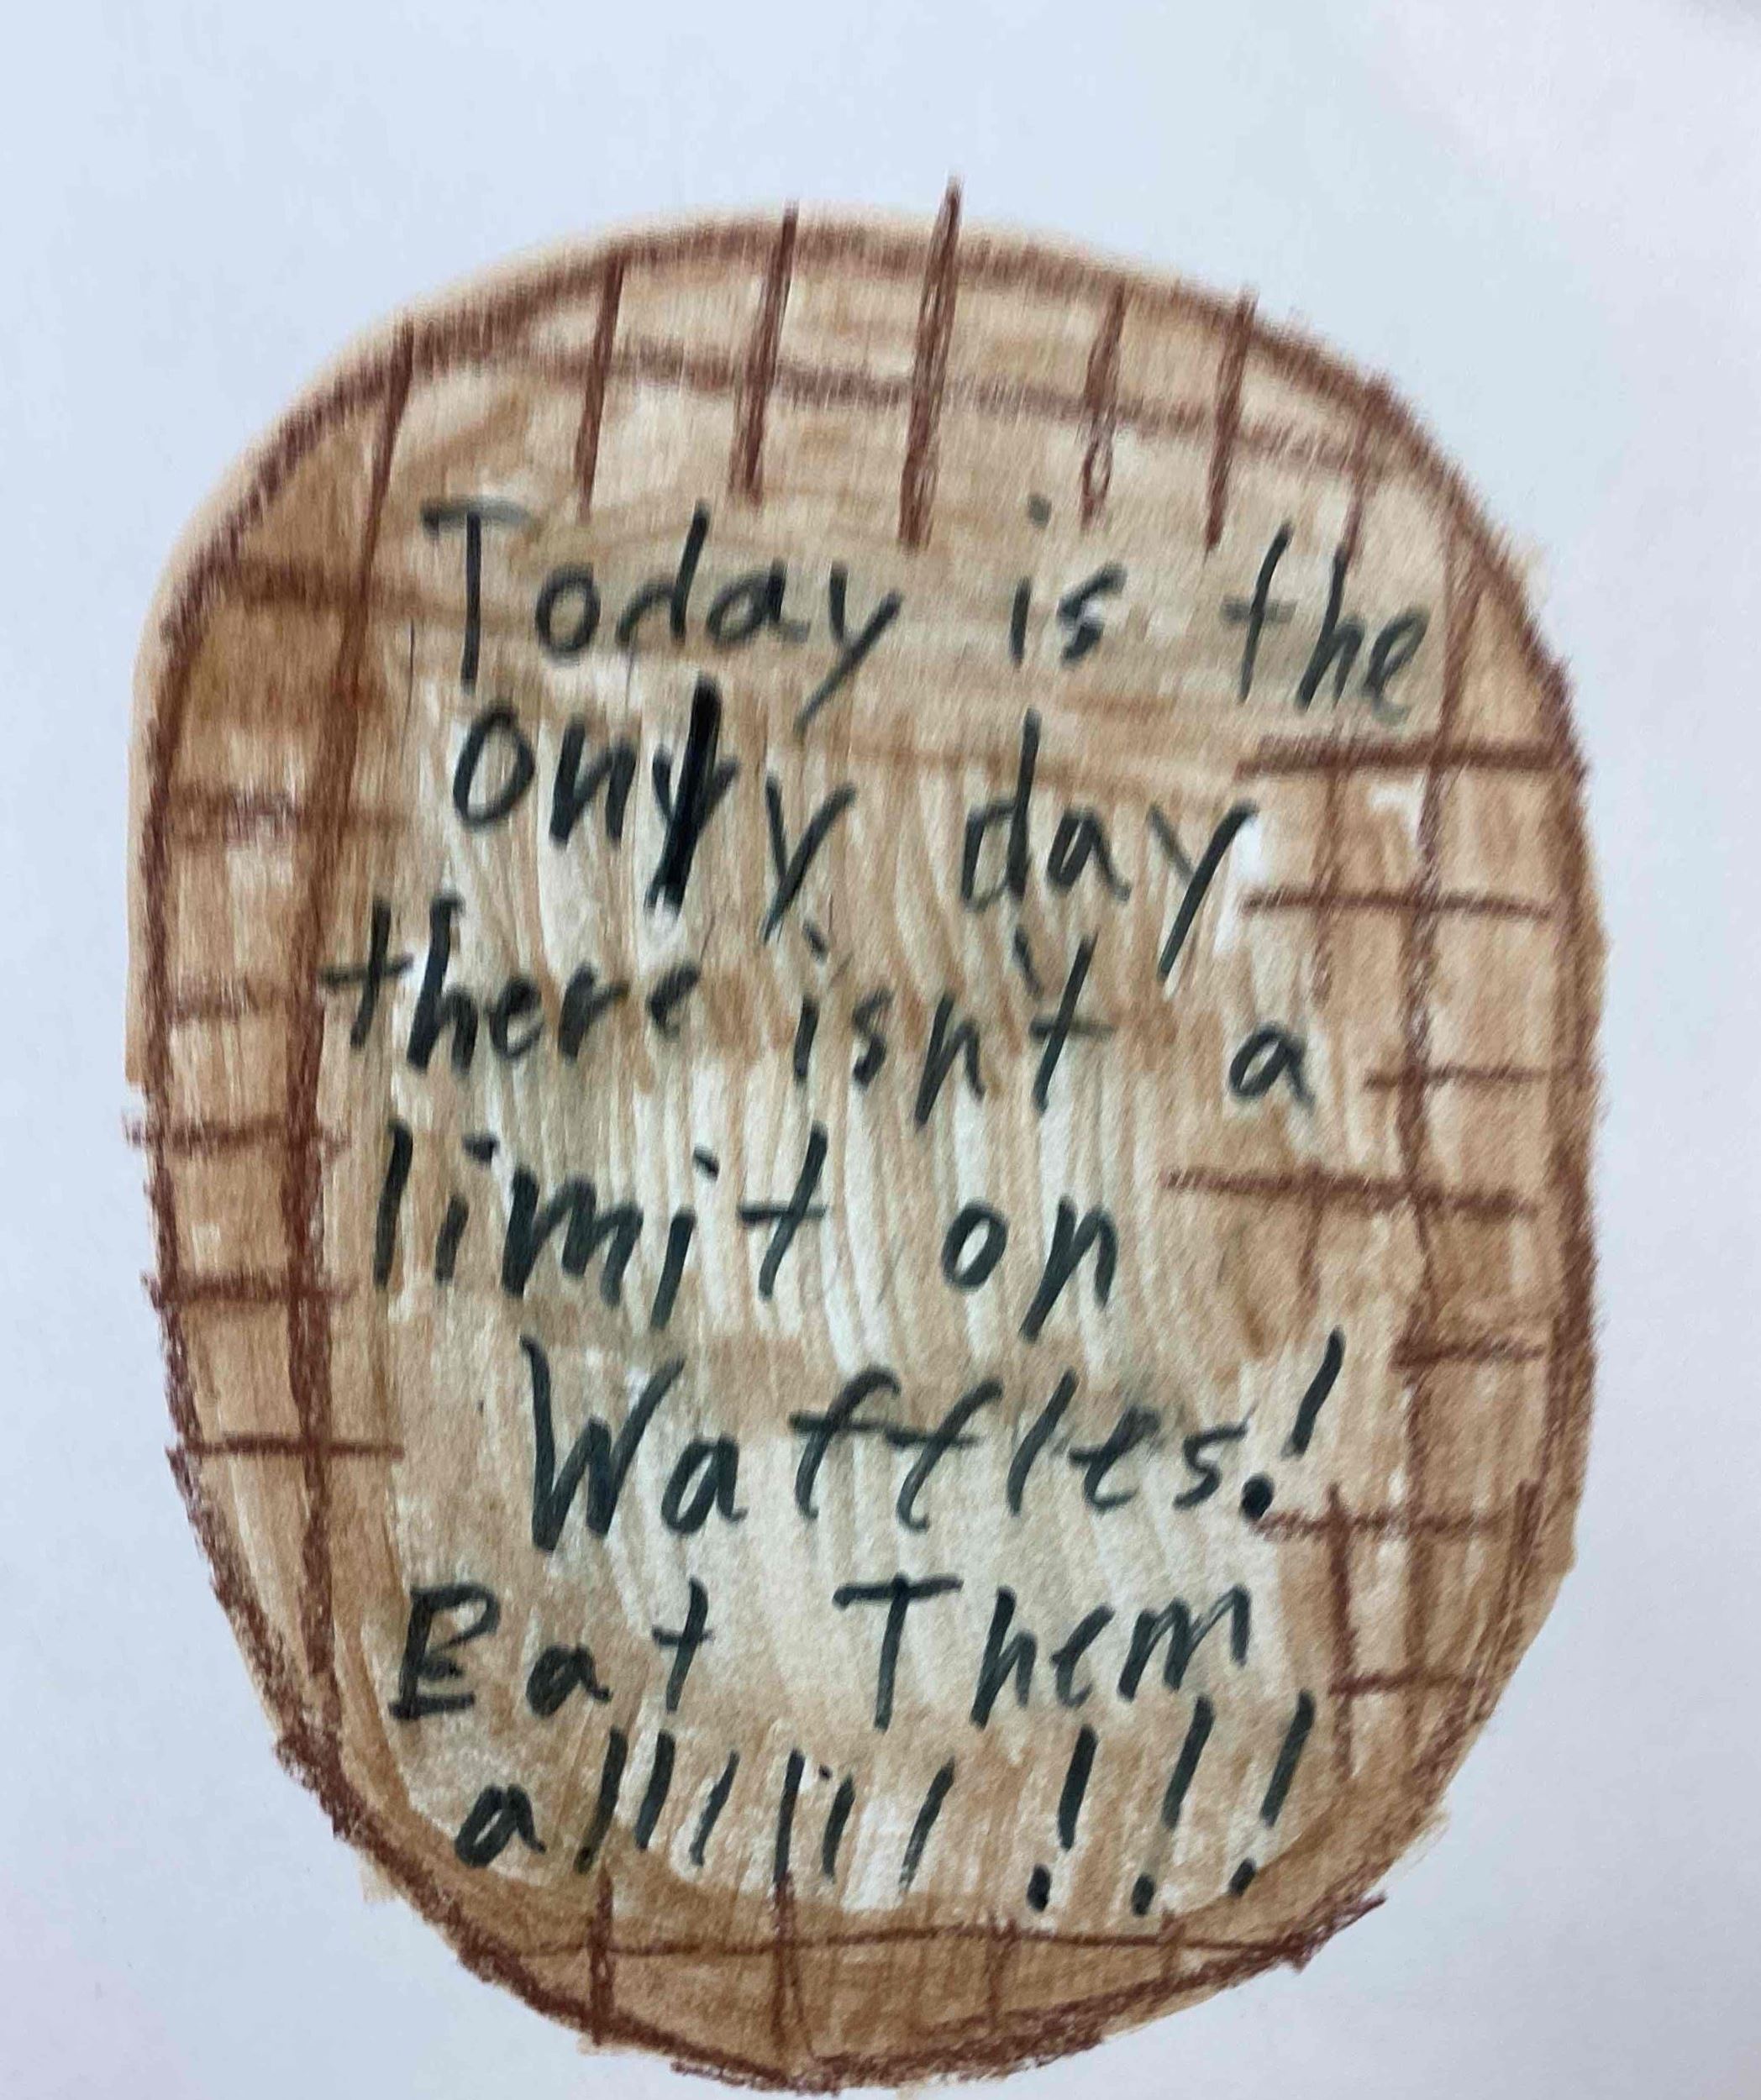 Today is the
only day
there isn't a
limit on
Waffles!
Eat Them
allllllll!!!